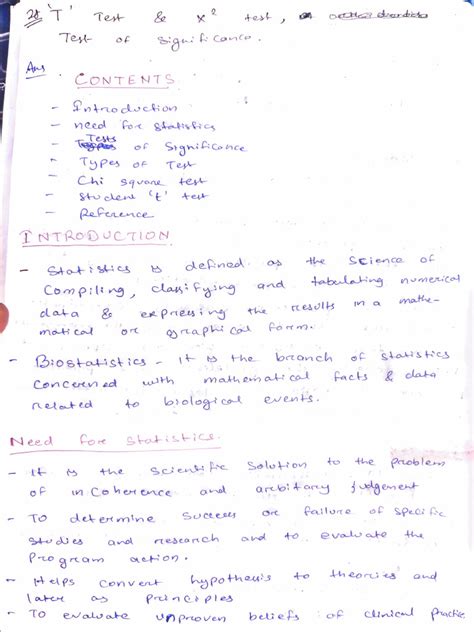 'T' Test & x² test,
Test of Significance.
Ans
CONTENTS
- Introduction
- need for statistics
- Tests of Significance
- Types of Test
- Chi square test
- Student 't' test
- Reference
INTRODUCTION
- Statistics is defined as the Science of
Compiling, classifying and tabulating numerical
data & expressing the results in a mathe-
matical or graphical form.
- Biostatistics - It is the branch of statistics
Concerned with mathematical facts & data
related to biological events.
Need for Statistics.
- It is the Scientific Solution to the problem
of incoherence and arbitary judgement
- To determine Success or failure of specific
Studies and research and to evaluate the
Program action.
- Helps convert hypothesis to theories and
later as principles
- To evaluate unproven beliefs of clinical practice